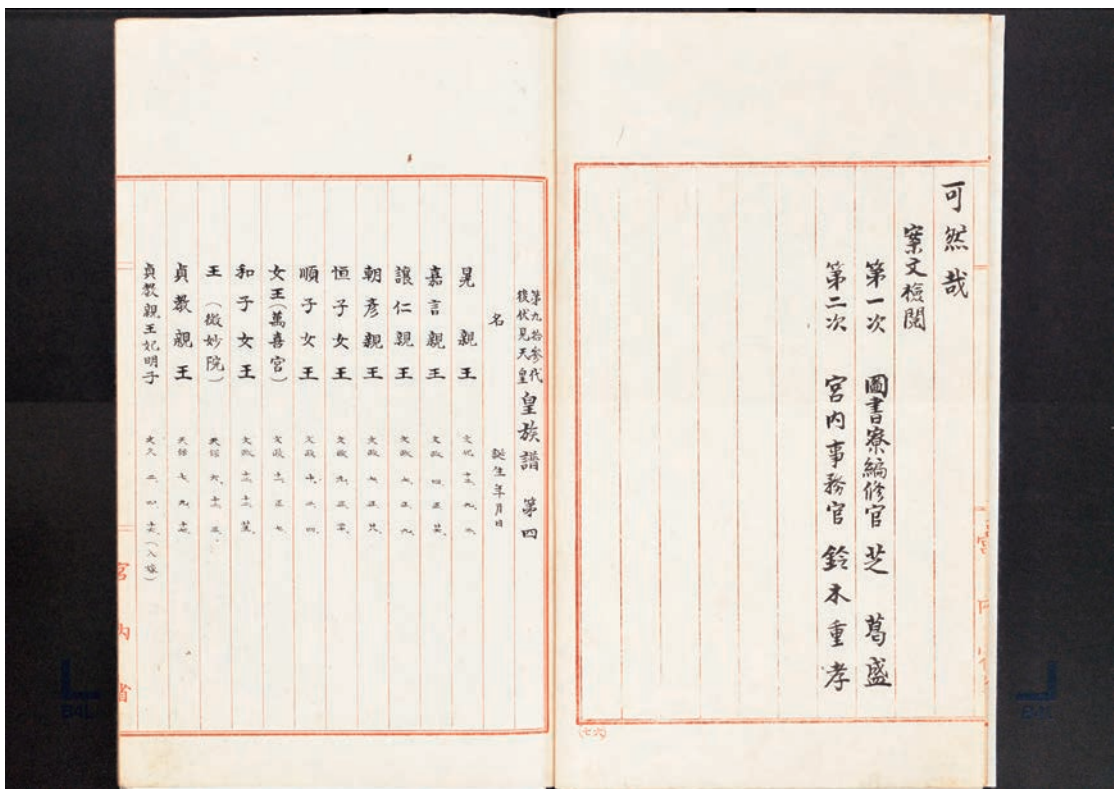 可然哉
案文檢閲
第一次 圖書寮編修官 芝 葛盛
第二次 宮内事務官 鈴木重孝
(六七)
第九拾參代
後伏見天皇 皇族譜 第四
名 誕生年月日
晃親王
嘉言親王 文政 四、正、
讓仁親王 文政 七、正、九、
朝彦親王 文政 七、正、
恒子女王 文政 九、正、
順子女王 文政 十、
女王(萬喜宮) 文政 十一、正、七、
和子女王 文政 十二、十二、
王(微妙院) 天保 六、十二、三、
貞教親王 天保 七、九、
貞教親王妃明子 文久 二、四、(入嫁)
宮内省